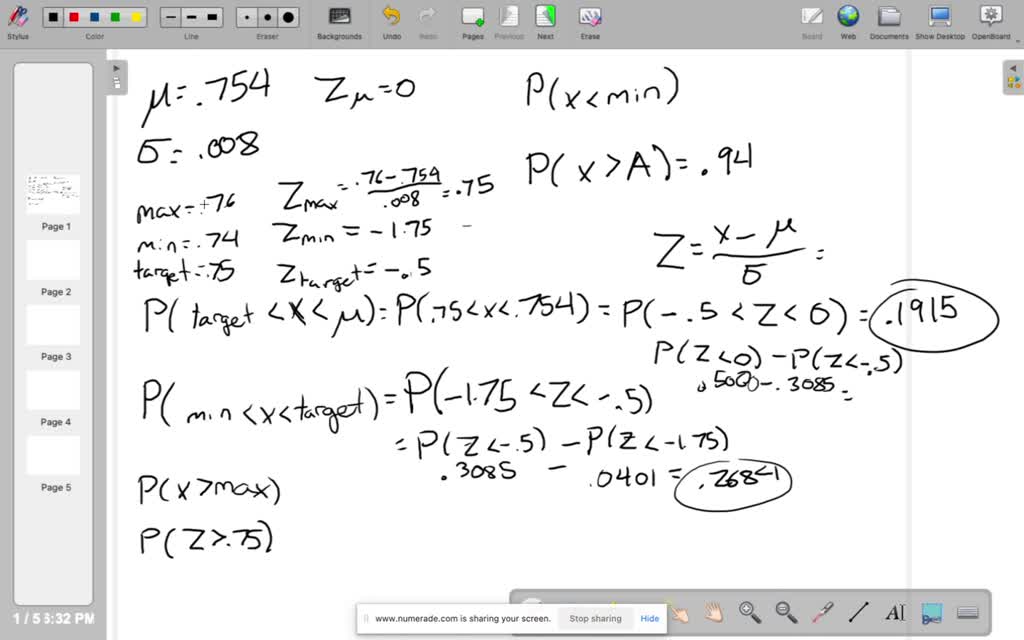 Stylus
Color
Line
Eraser
Backgrounds
Undo
Redo
Pages
Previous
Next
Erase
Board
Web
Documents
Show Desktop
OpenBoard
Page 1
Page 2
Page 3
Page 4
Page 5
1 / 5 6:32 PM
μ = .754
Zμ = 0
P(x < min)
σ = .008
P(x > A) = .94
max = .76
Zmax = .76 - .754 / .008 = .75
min = .74
Zmin = -1.75
Z = x - μ / σ =
target = .75
Ztarget = -.5
P(target < x < μ) = P(.75 < x < .754) = P(-.5 < Z < 0) = .1915
P(Z < 0) - P(Z < -.5)
.5000 - .3085 =
P(min < x < target) = P(-1.75 < Z < -.5)
= P(Z < -.5) - P(Z < -1.75)
.3085 - .0401 = .2684
P(x > max)
P(Z > .75)
www.numerade.com is sharing your screen.
Stop sharing
Hide
AI